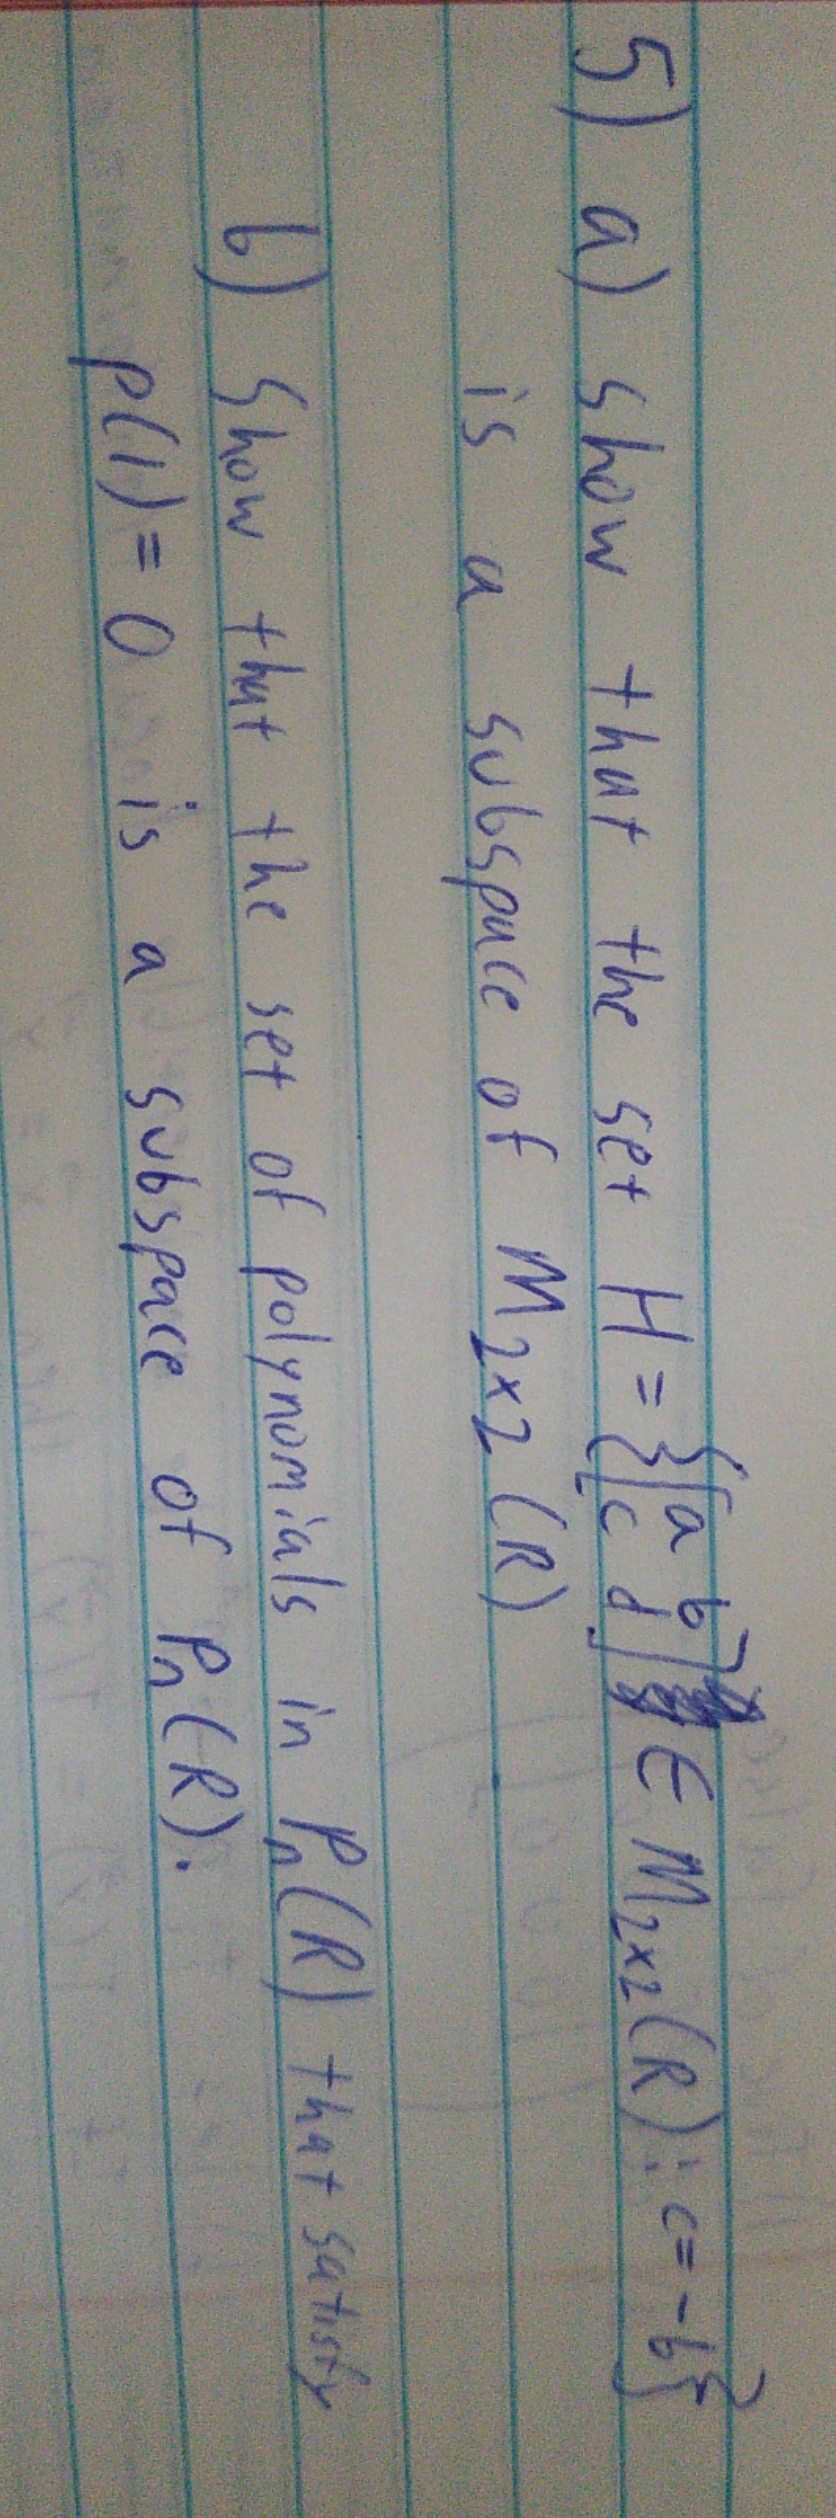 5) a) show that the set H = {[a b
c d] ∈ M2×2(R) : c = -b}
is a subspace of M2×2(R)
b) Show that the set of polynomials in Pn(R) that satisfy
p(1) = 0 is a subspace of Pn(R).